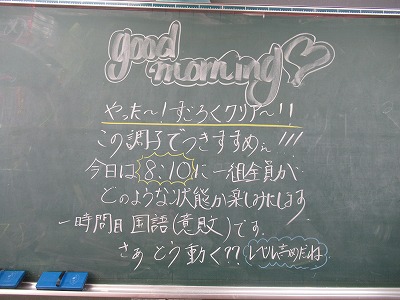 good
morning
やった～!すごろくクリア～!!
この調子でつきすすめぇ!!!
今日は8:10に一組全員が
どのような状態か楽しみにします
一時間目 国語(意敗)です.
さぁ どう動く??